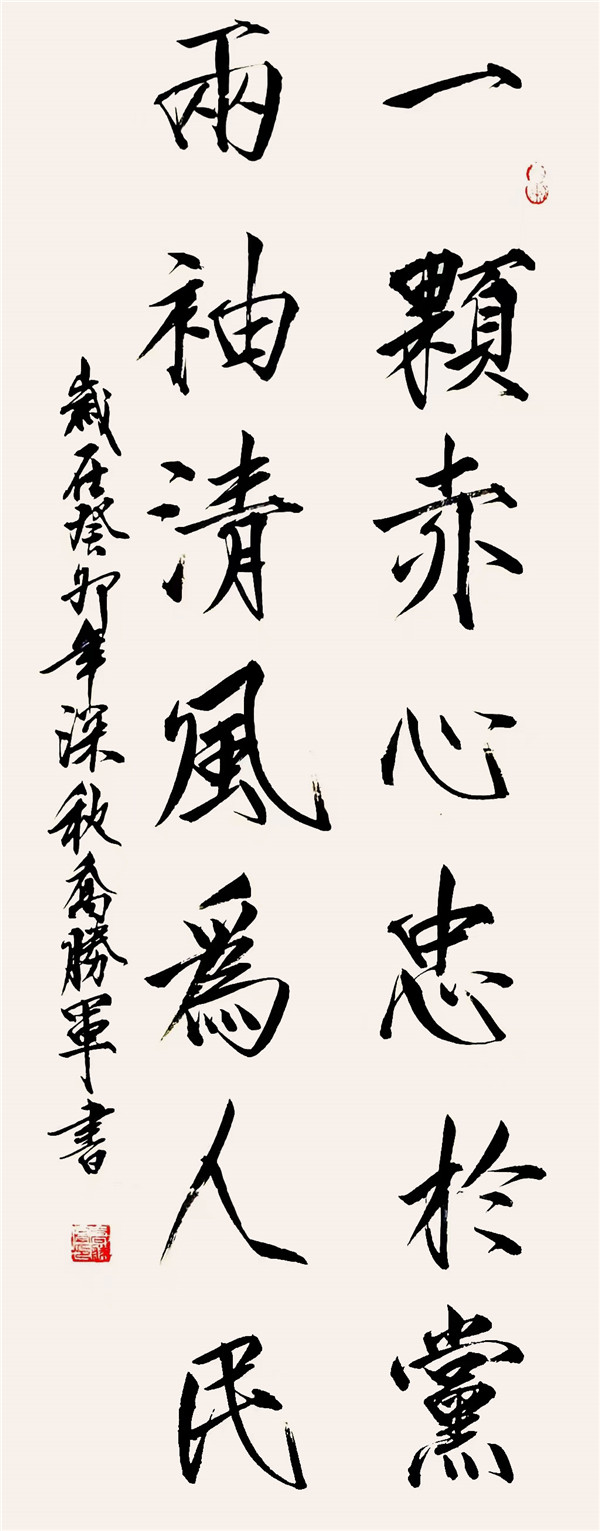 一顆赤心忠於黨
兩袖清風為人民
歲在癸卯年深秋喬勝軍書